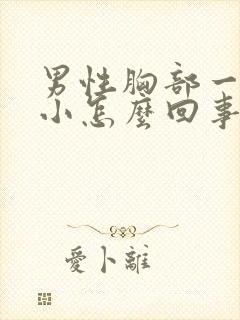 男性胸部一
小怎麼回事
愛卜離